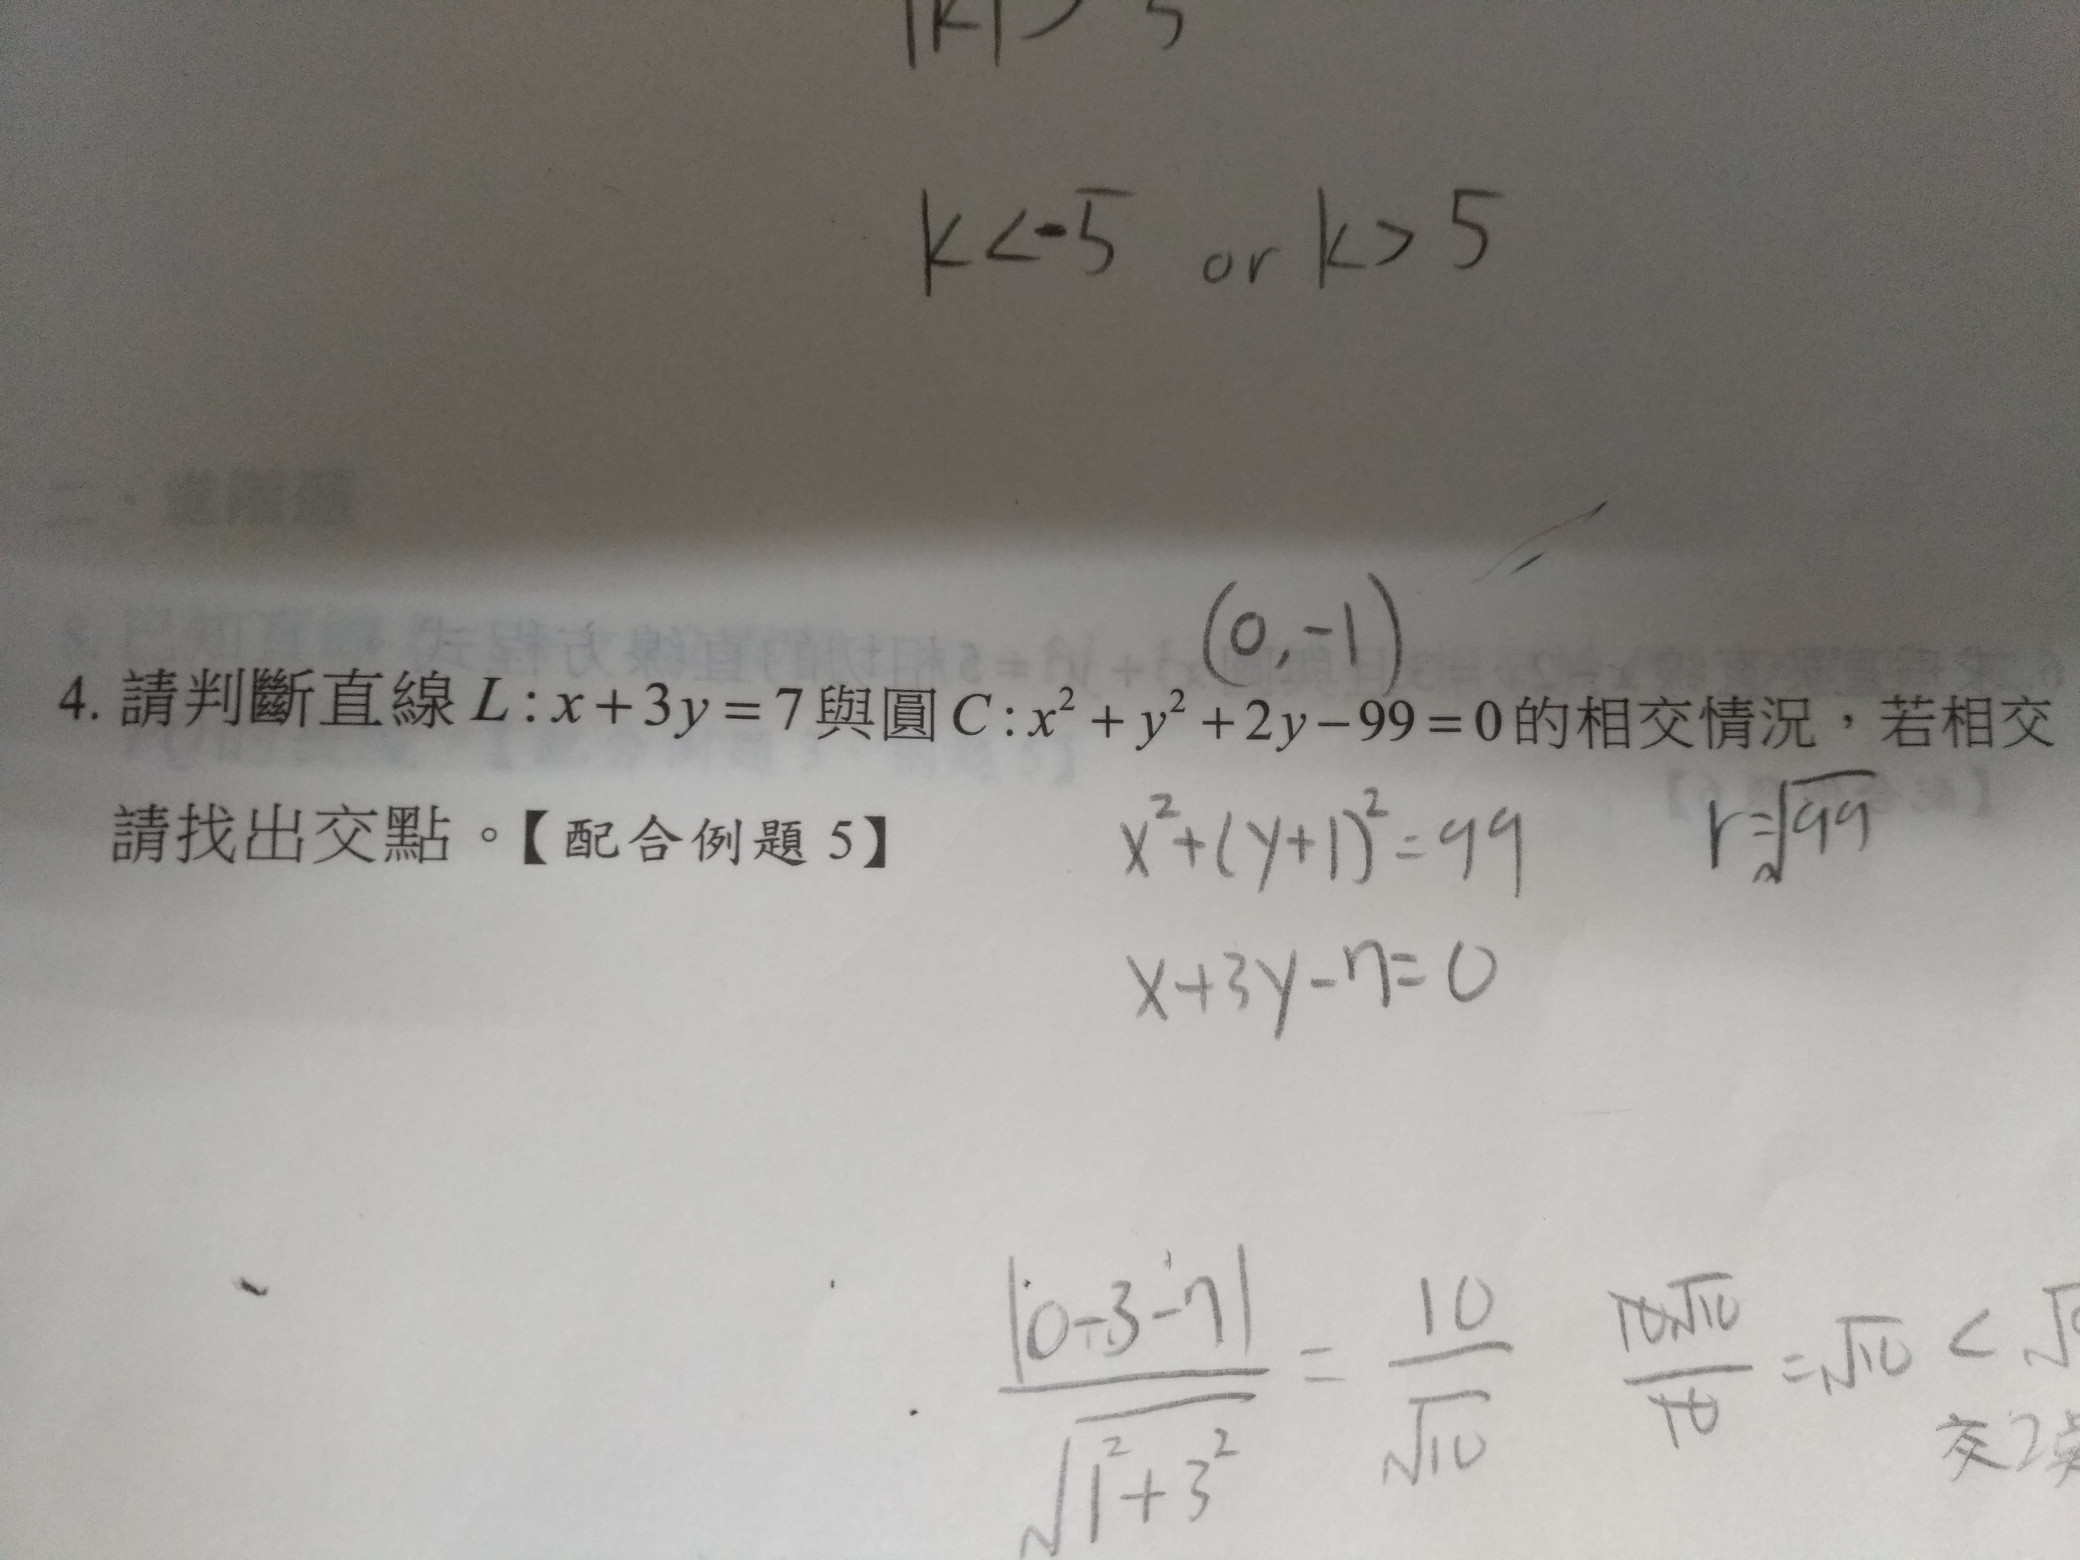 |k| > 5
k < -5 or k > 5
(0, -1)
4. 請判斷直線 L : x + 3y = 7 與圓 C : x² + y² + 2y − 99 = 0 的相交情況，若相交
請找出交點。【配合例題 5】
x² + (y+1)² = 99 r = √99
x + 3y - 7 = 0
|0-3-7| / √(1²+3²) = 10/√10 10√10/10 = √10 <
交2